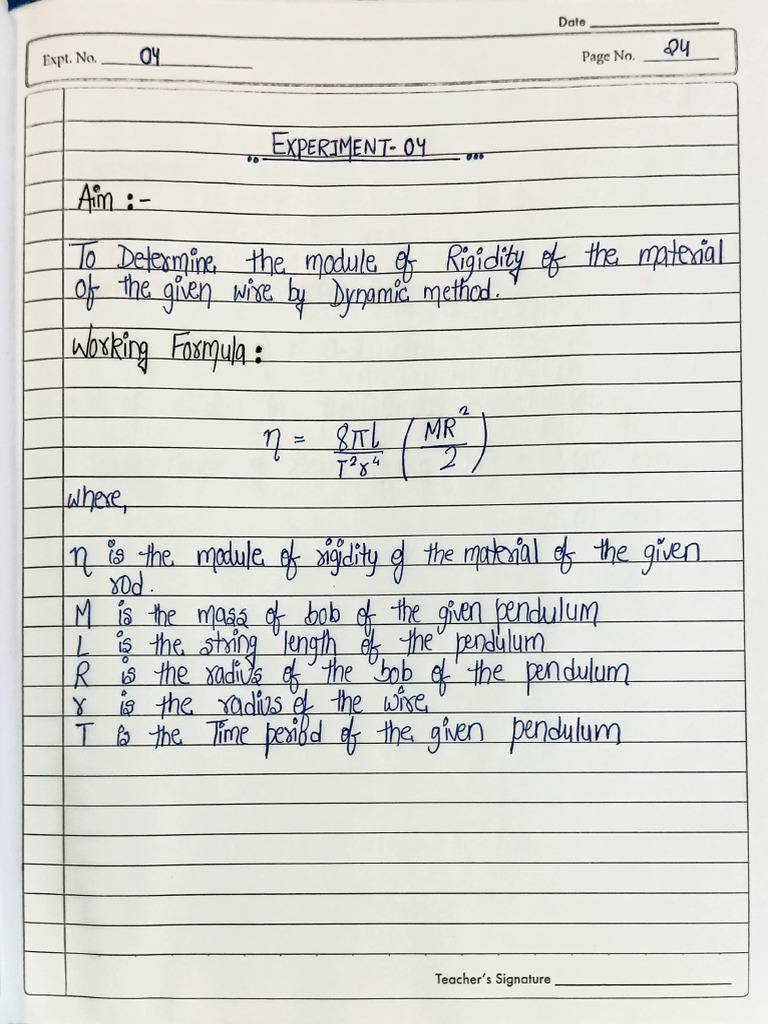 Date
Expt. No. 04 Page No. 24
EXPERIMENT- 04
Aim :-
To Determine the module of Rigidity of the material
of the given wire by Dynamic method.
Working Formula :
η = 8πl / T²r⁴ ( MR² / 2 )
where,
η is the module of rigidity of the material of the given
rod.
M is the mass of bob of the given pendulum
L is the string length of the pendulum
R is the radius of the bob of the pendulum
r is the radius of the wire
T is the Time period of the given pendulum
Teacher's Signature